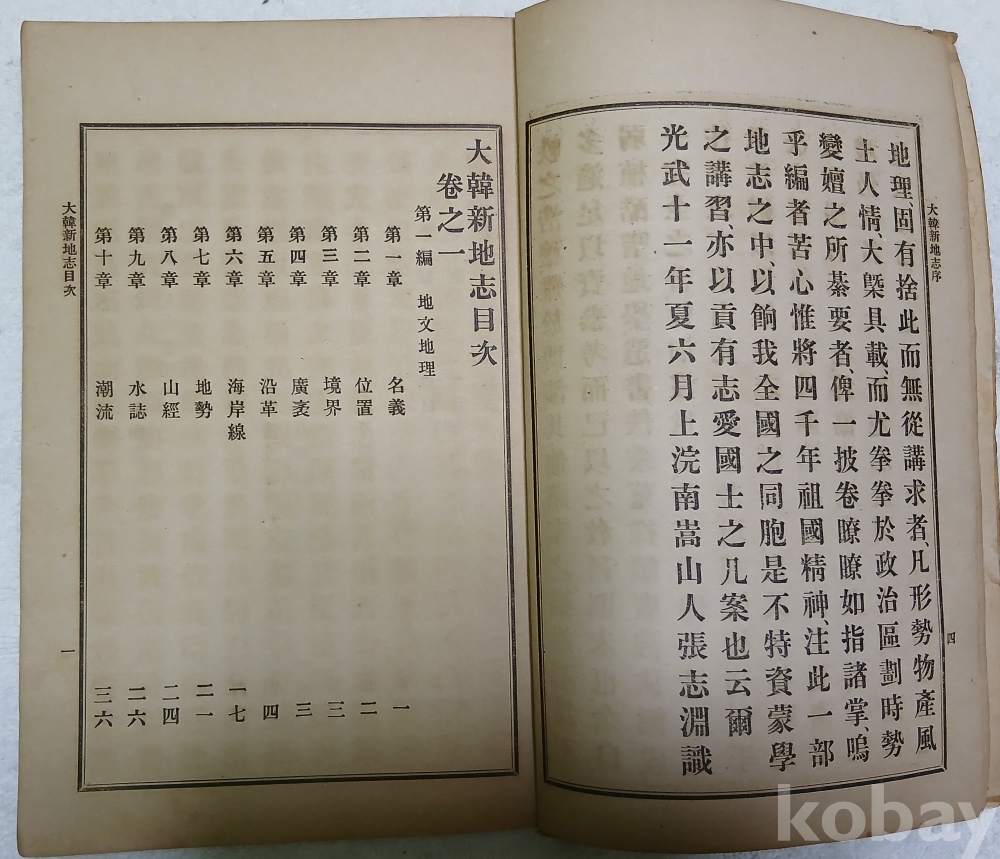 大韓新地志序
四
地理、固有捨此而無從講求者、凡形勢物產風
土人情、大槩具載、而尤拳拳於政治區劃時勢
變嬗之所綦要者、俾一披卷瞭瞭如指諸掌、嗚
乎編者苦心惟將四千年祖國精神、注此一部
地志之中、以餉我全國之同胞是不特資蒙學
之講習、亦以貢有志愛國士之几案也云爾
光武十一年夏六月上浣南嵩山人張志淵識
大韓新地志目次
卷之一
第一編 地文地理
第一章 名義 一
第二章 位置 二
第三章 境界 三
第四章 廣袤 三
第五章 沿革 四
第六章 海岸線 一七
第七章 地勢 二一
第八章 山經 二四
第九章 水誌 二六
第十章 潮流 三六
大韓新地志目次
一
kobay